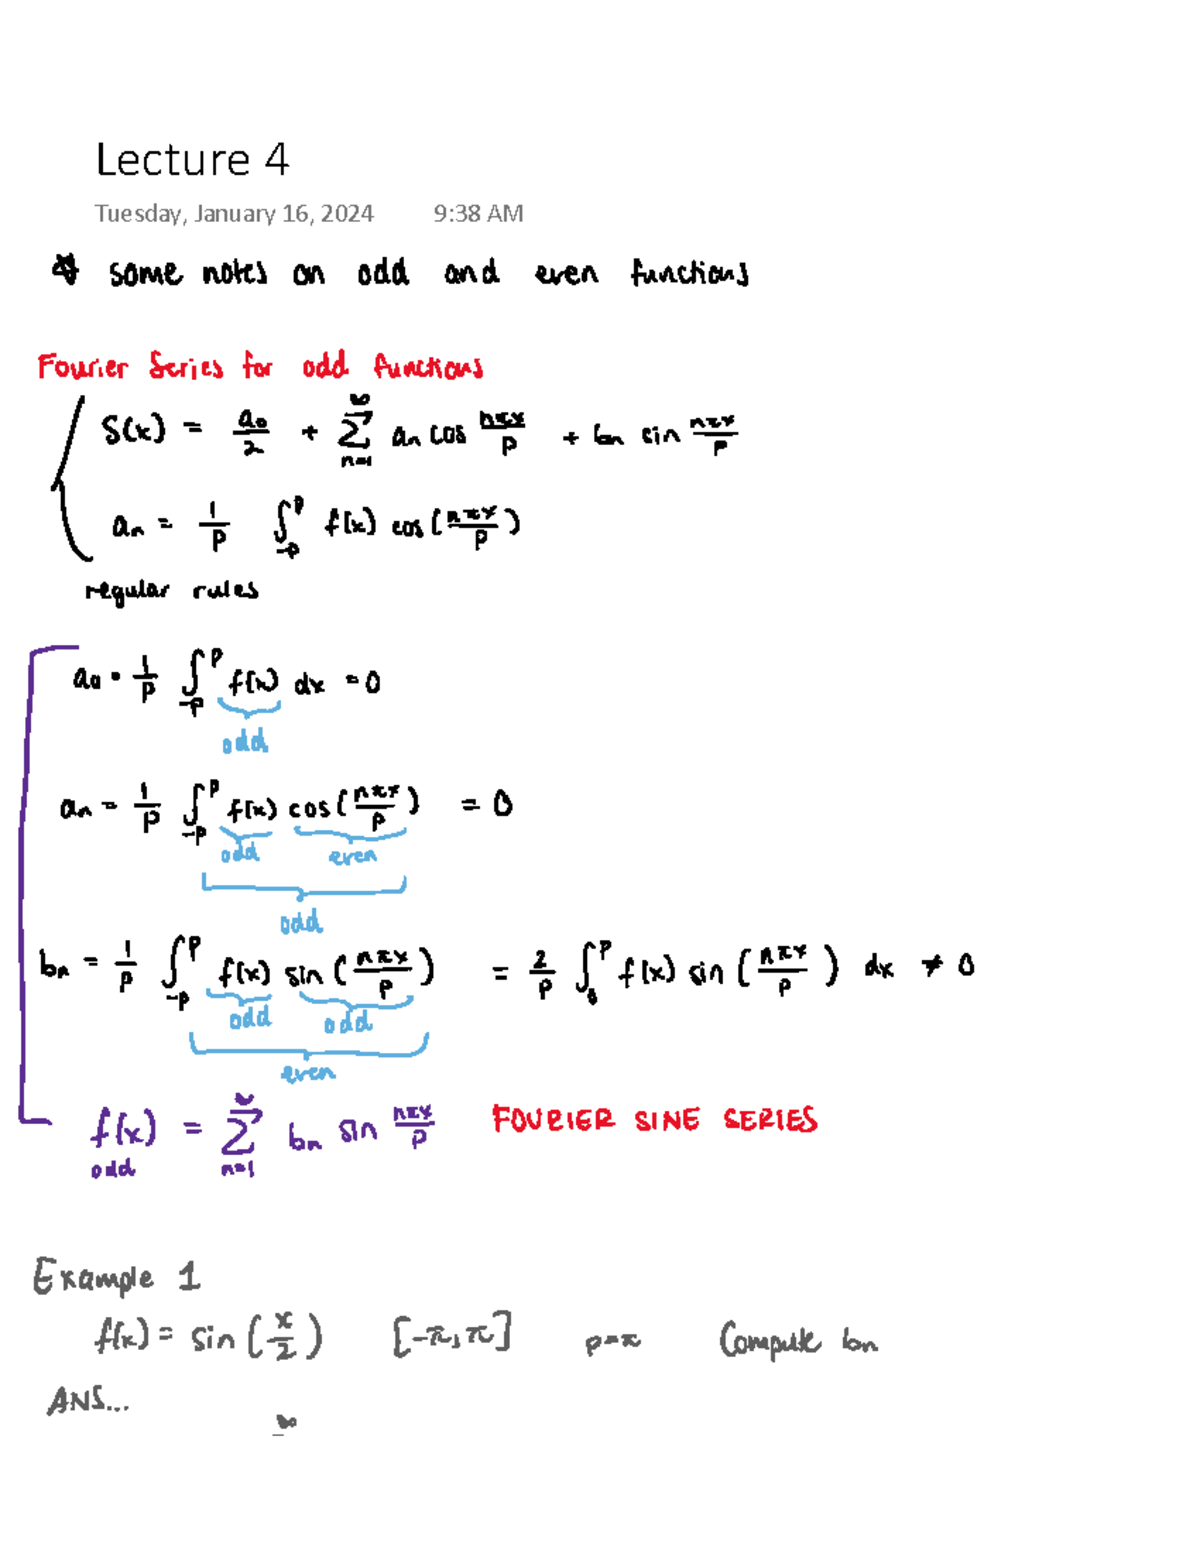 Lecture 4
Tuesday, January 16, 2024 9:38 AM
☆ some notes on odd and even functions
Fourier Series for odd functions
S(x) = a₀/2 + ∑_{n=1}^{∞} aₙ cos nπx/p + bₙ sin nπx/p
aₙ = 1/p ∫_{-p}^{p} f(x) cos(nπx/p)
regular rules
a₀ = 1/p ∫_{-p}^{p} f(x) dx = 0
odd
aₙ = 1/p ∫_{-p}^{p} f(x) cos(nπx/p) = 0
odd even
odd
bₙ = 1/p ∫_{-p}^{p} f(x) sin(nπx/p) = 2/p ∫_{0}^{p} f(x) sin(nπx/p) dx ≠ 0
odd odd
even
f(x) = ∑_{n=1}^{∞} bₙ sin nπx/p FOURIER SINE SERIES
odd
Example 1
f(x) = sin(x/2) [-π, π] p=π Compute bₙ
ANS...
∞